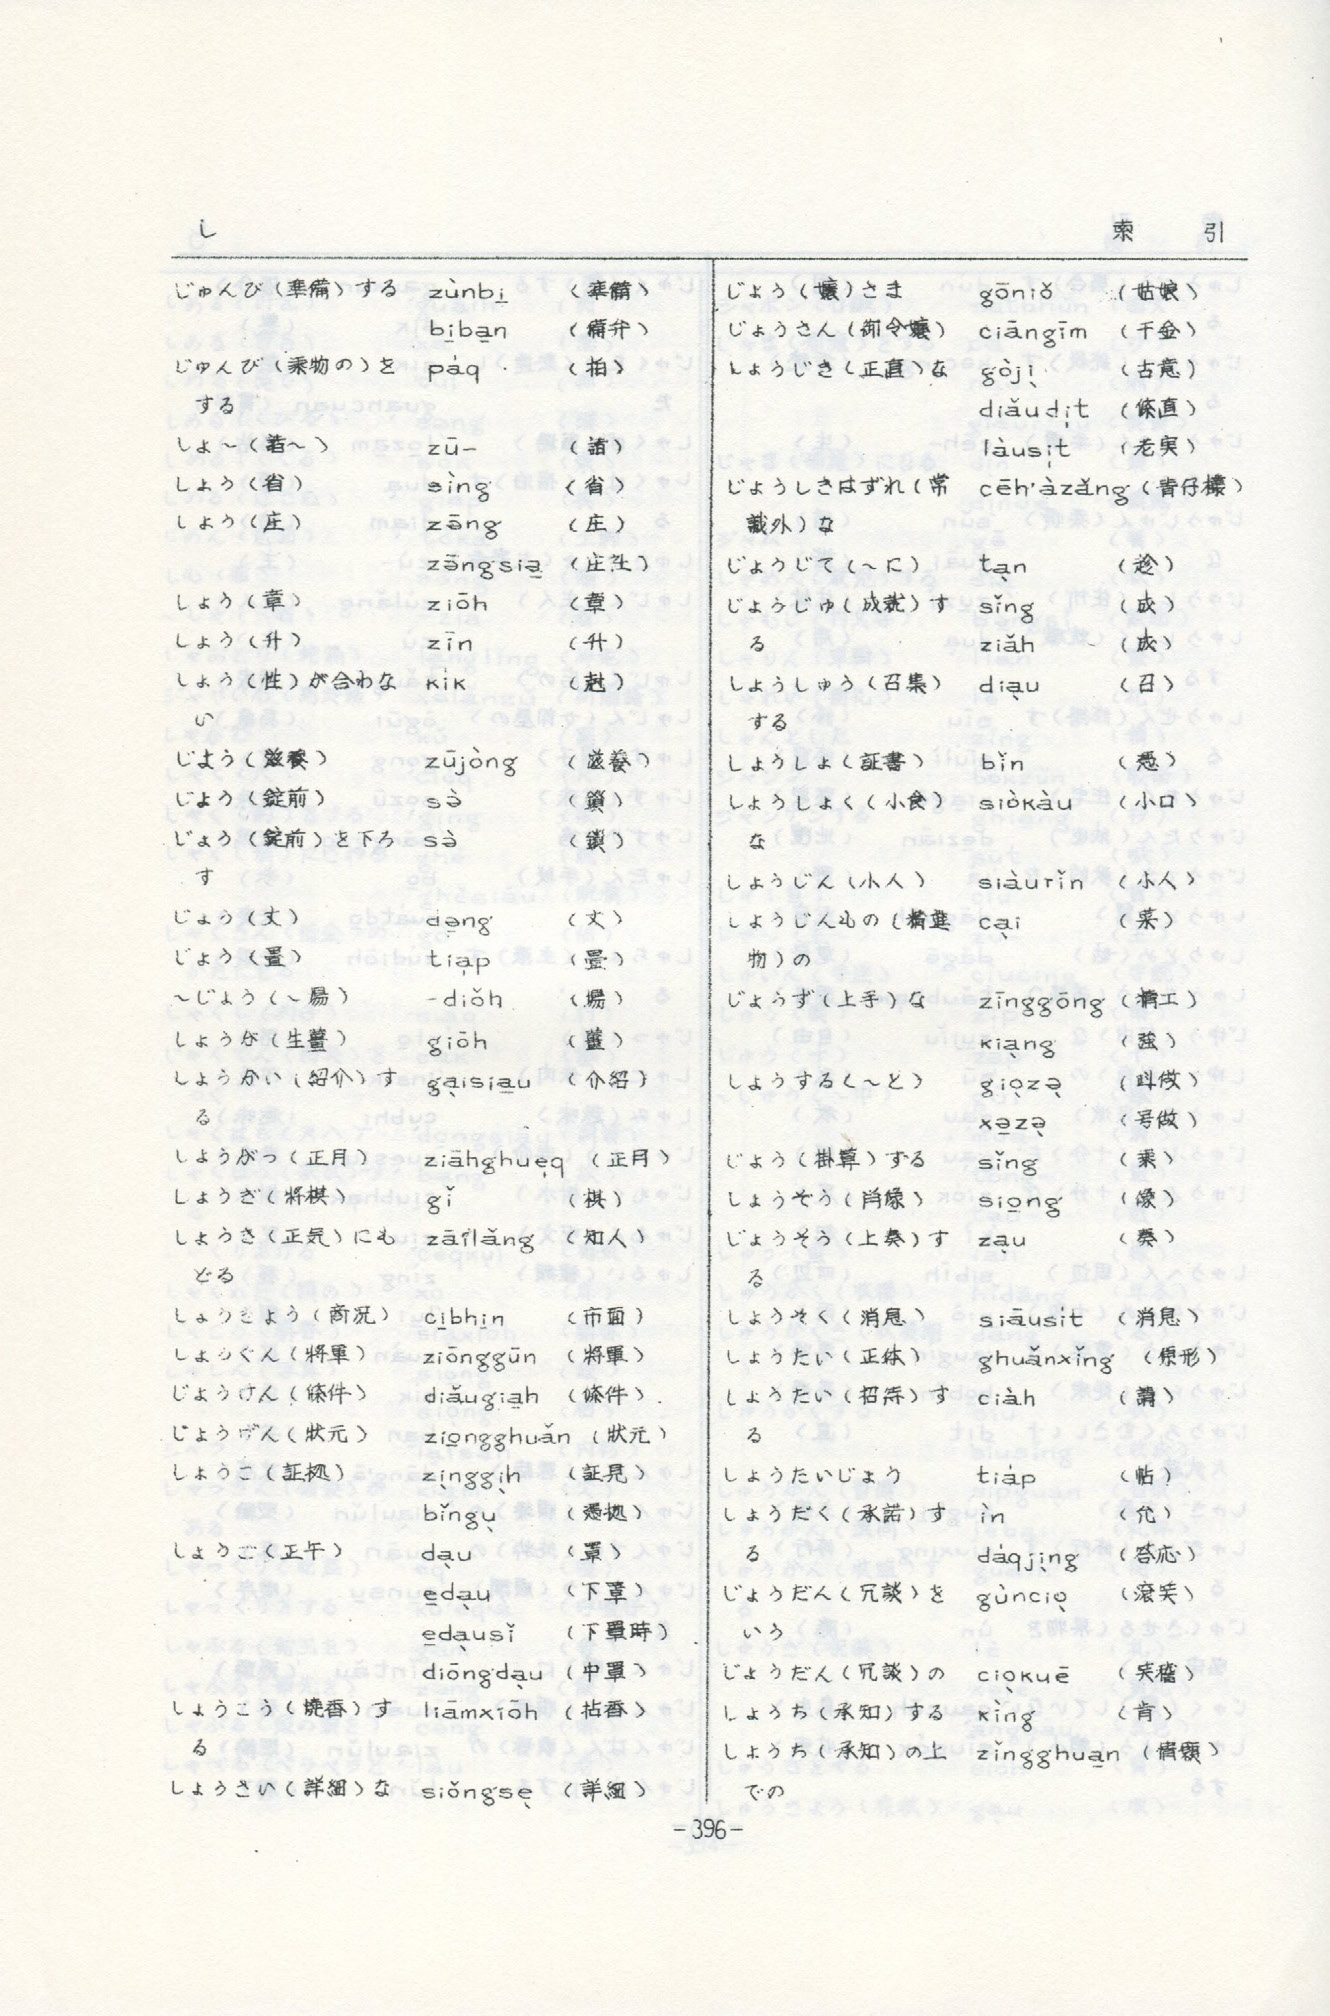 し
索 引
じゅんび(準備)する zùnbi̱ (準備)
bi̱ba̱n (備弁)
じゅんび(乗物の)を páq (拍)
する
しょ～(諸～) zū- (諸)
しょう(省) sìng (省)
しょう(庄) zə̄ng (庄)
zə̄ngsia̱ (庄社)
しょう(章) ziōh (章)
しょう(升) zīn (升)
しょう(性)が合わな kı̍k (尅)
い
じよう(滋養) zūjòng (滋養)
じょう(錠前) sə̀ (鎖)
じょう(錠前)を下ろ sə̀ (鎖)
す
じょう(丈) də̱ng (丈)
じょう(畳) tia̍p (疊)
～じょう(～場) -diǒh (場)
しょうが(生薑) giōh (薑)
しょうかい(紹介)す gạisia̱u (介紹)
る
しょうがつ(正月) ziāhghuẹq (正月)
しょうぎ(将棋) gǐ (棋)
しょうき(正気)にも zāilǎng (知人)
どる
しょうきょう(商況) ci̱bhi̱n (市面)
しょうぐん(将軍) ziōnggūn (將軍)
じょうけん(條件) diǎugia̱h (條件)
じょうげん(狀元) zio̱ngghuǎn (狀元)
しょうこ(証拠) zịnggịh (証見)
bǐngụ (憑拠)
しょうご(正午) dạu (罩)
e̱dạu (下罩)
e̱dạusǐ (下罩時)
diōngdạu (中罩)
しょうこう(焼香)す liāmxiōh (拈香)
る
しょうさい(詳細)な siǒngsẹ (詳細)
じょう(嬢)さま gōniǒ (姑娘)
じょうさん(御令嬢) ciāngīm (千金)
しょうじき(正直)な gòjị (古意)
diǎudi̍t (條直)
làusi̍t (老実)
じょうしきはずれ(常 cēh'àzǎng (青仔欉)
識外)な
じょうじて(～に) tạn (趁)
じょうじゅ(成就)す sǐng (成)
る ziǎh (成)
しょうしゅう(召集) diạu (召)
する
しょうしょ(証書) bǐn (憑)
しょうしょく(小食) siòkàu (小口)
な
しょうじん(小人) siàurǐn (小人)
しょうじんもの(精進 cại (菜)
物)の
じょうず(上手)な zīnggōng (精工)
kiạng (強)
しょうする(～と) giọzə̣ (叫做)
xə̱zə̣ (号做)
じょう(掛算)ずる sǐng (乗)
しょうぞう(肖像) sio̱ng (像)
じょうそう(上奏)す zạu (奏)
る
しょうそく(消息) siāusit (消息)
しょうたい(正体) ghuǎnxǐng (原形)
しょうたい(招待)す ciàh (請)
る
しょうたいじょう tiáp (帖)
しょうだく(承諾)す ìn (允)
る dáqjịng (答応)
じょうだん(冗談)を gùnciọ (滾笑)
いう
じょうだん(冗談)の ciọkuē (笑詼)
しょうち(承知)する kìng (肯)
しょうち(承知)の上 zǐngghua̱n (情願)
での
-396-